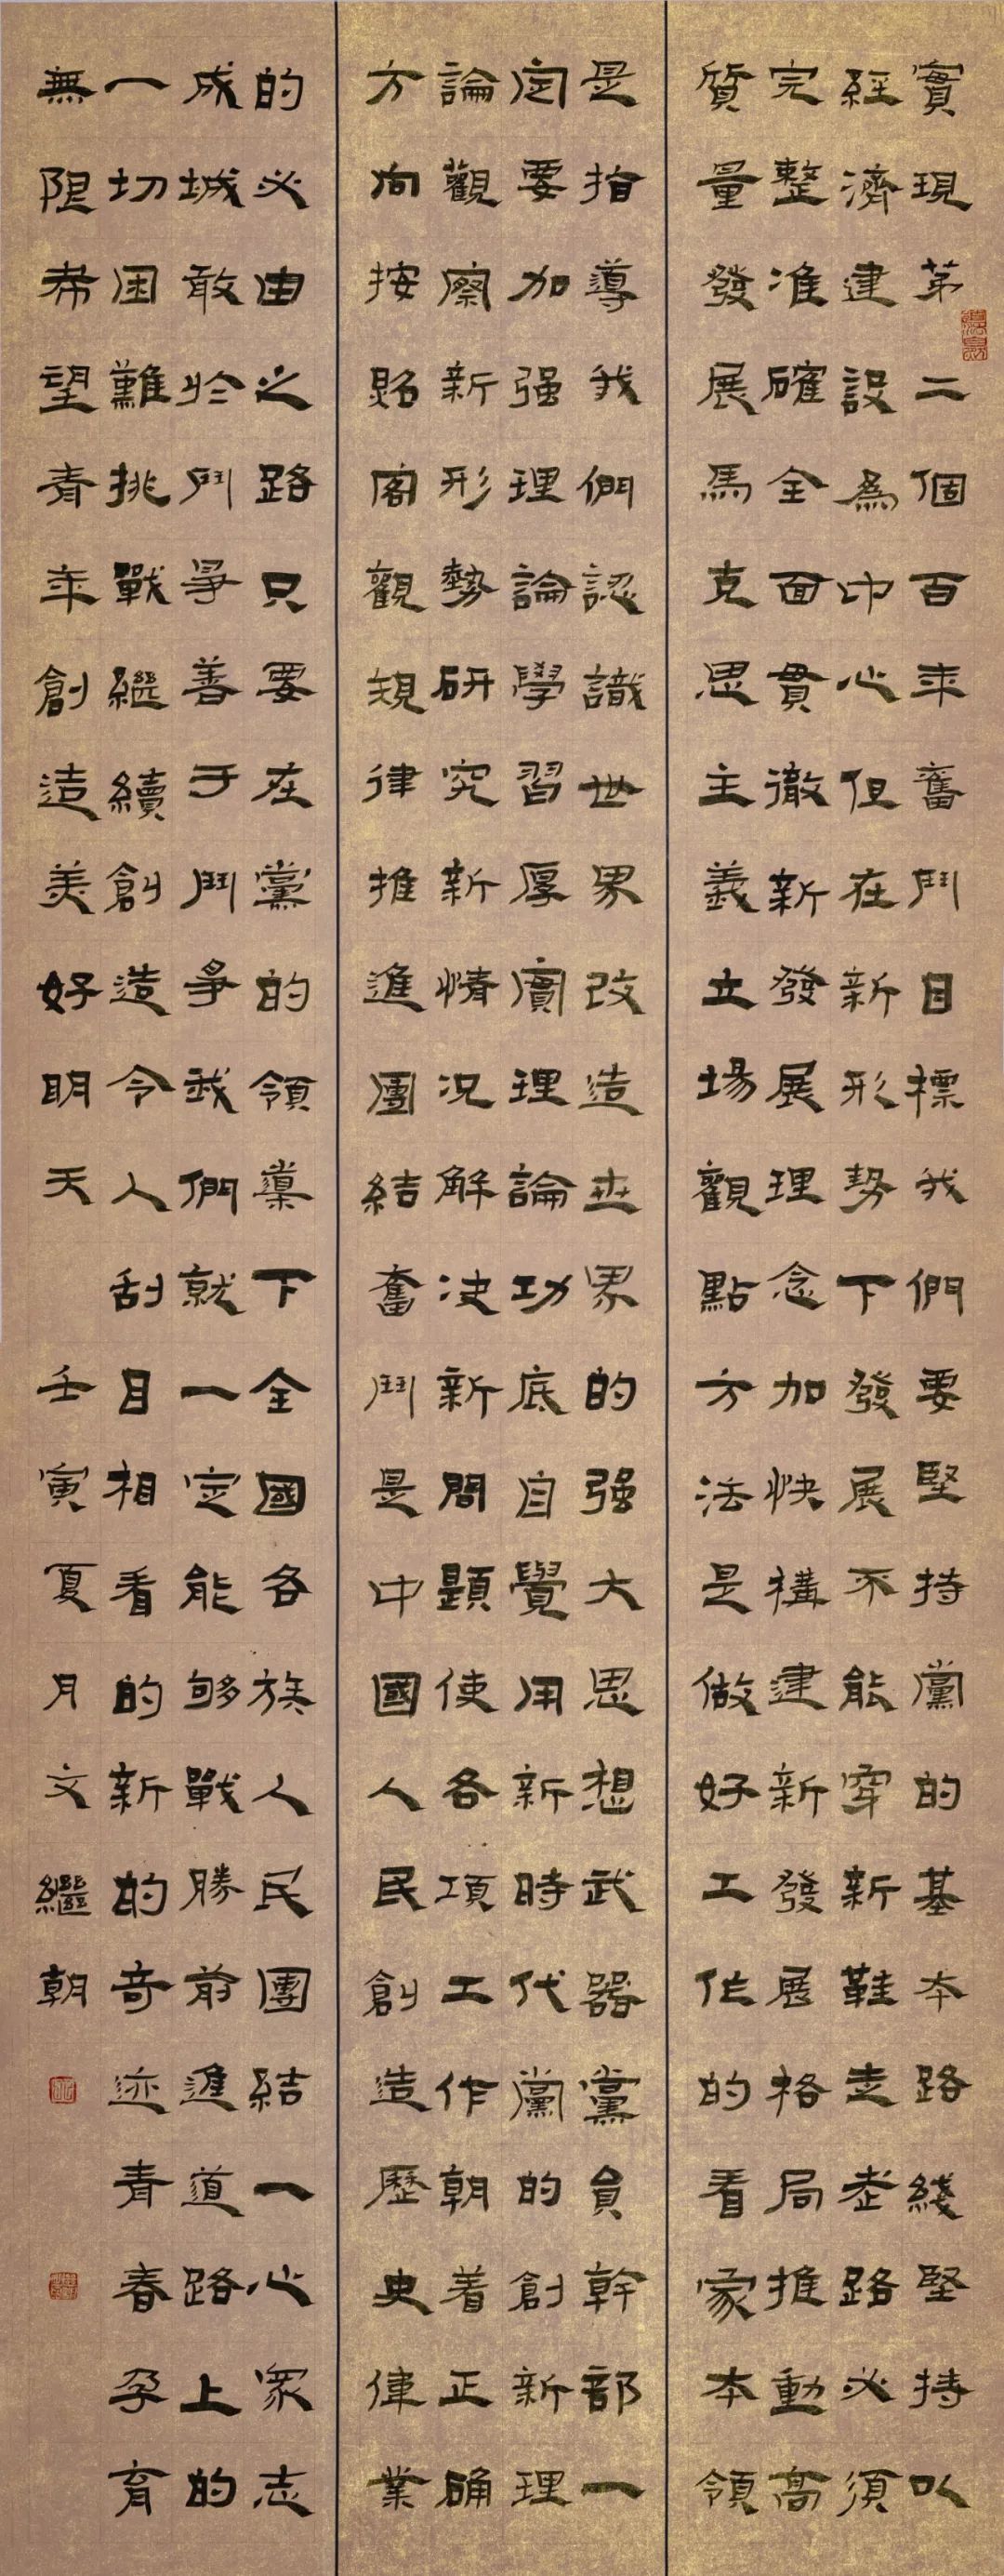 實現苐二個百年奮鬥目標我們要堅持黨的基本路綫堅持以
經濟建設爲中心但在新形勢下發展不能穿新鞋走老路必須
完整准確全面貫徹新發展理念加快構建新發展格局推動高
質量發展馬克思主義立場觀點方法是做好工作的看家本領
是指導我們認識世界改造世界的强大思想武器黨員幹部一
定要加强理論學習厚實理論功底自覺用新時代黨的創新理
論觀察新形勢研究新情况解决新問題使各項工作朝着正确
方向按照客觀規律推進團結奮鬥是中國人民創造歷史偉業
的必由之路只要在黨的領導下全國各族人民團結一心衆志
成城敢於鬥爭善于鬥爭我們就一定能够戰勝前進道路上的
一切困難挑戰繼續創造令人刮目相看的新的奇迹青春孕育
無限希望青年創造美好明天 壬寅夏月文繼朝